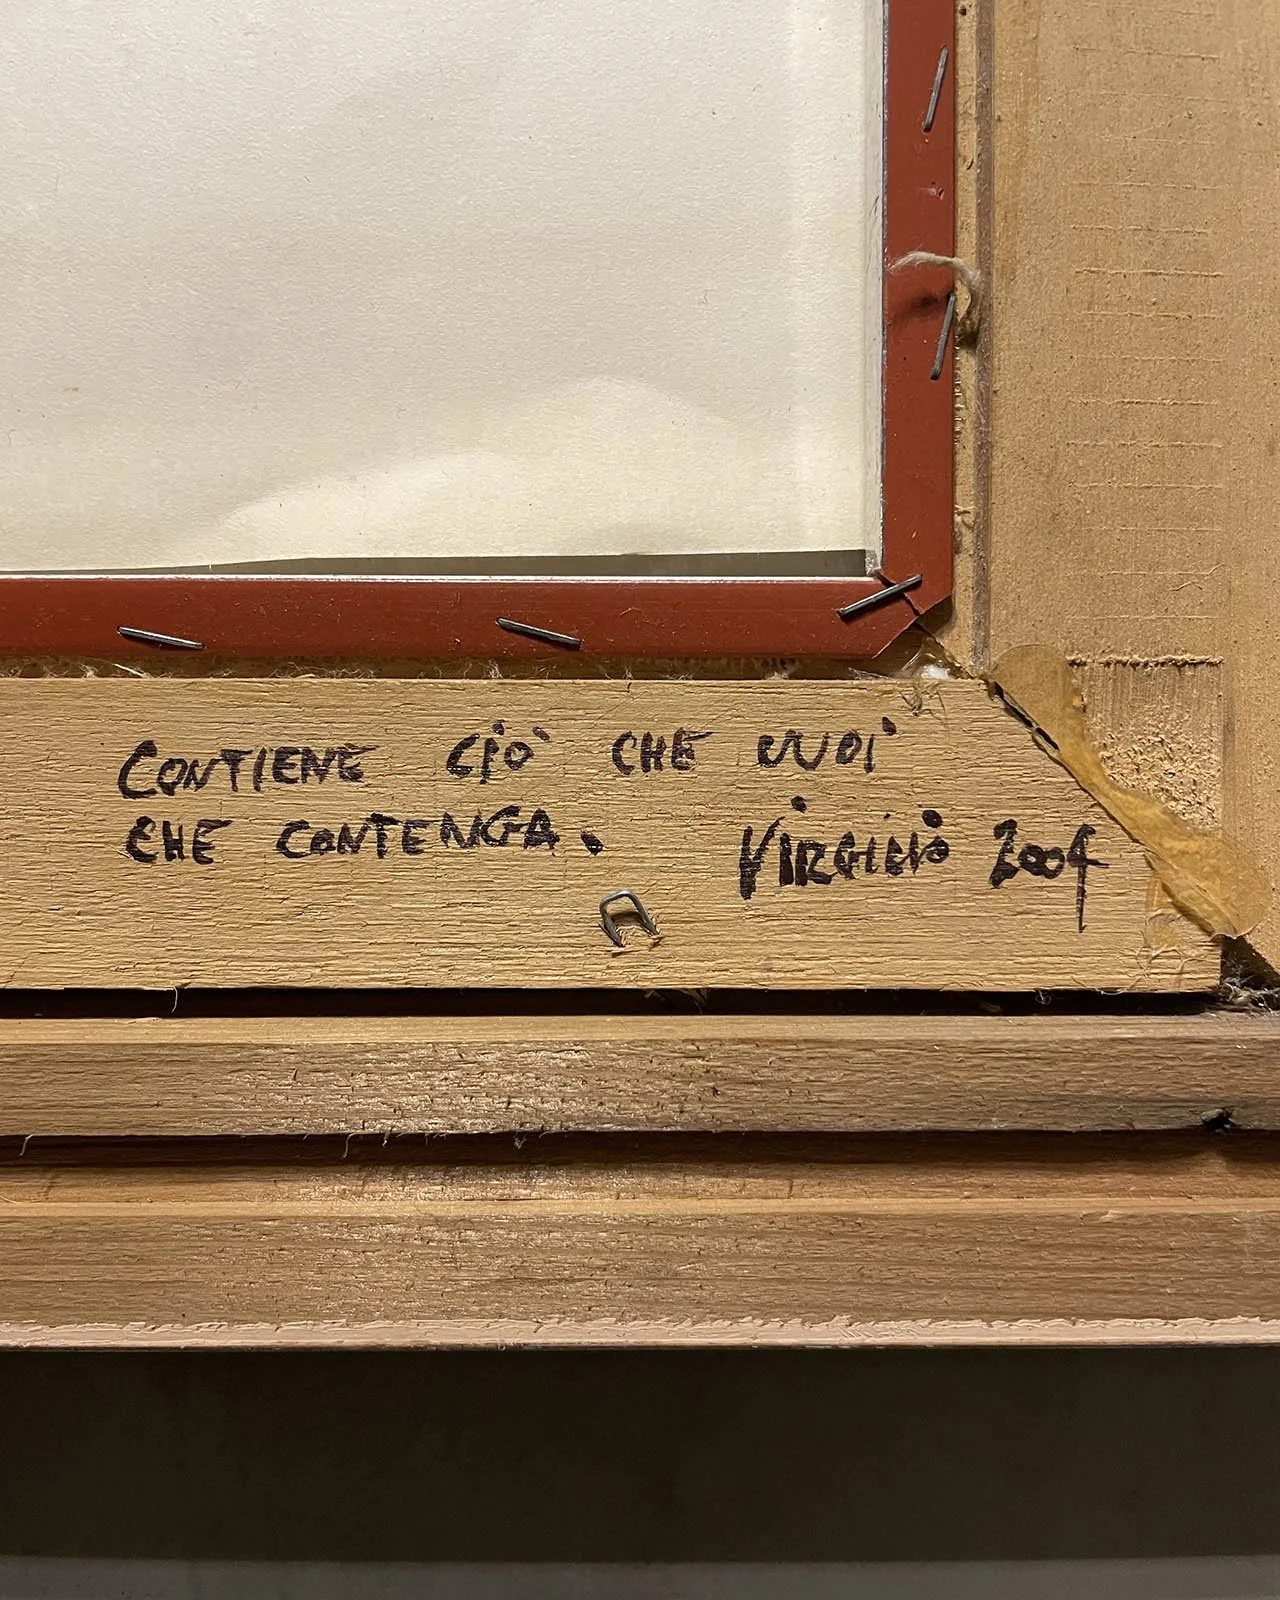 CONTIENE CiÒ CHE VUOi
CHE CONTENGA. ViRGiLiO 2004